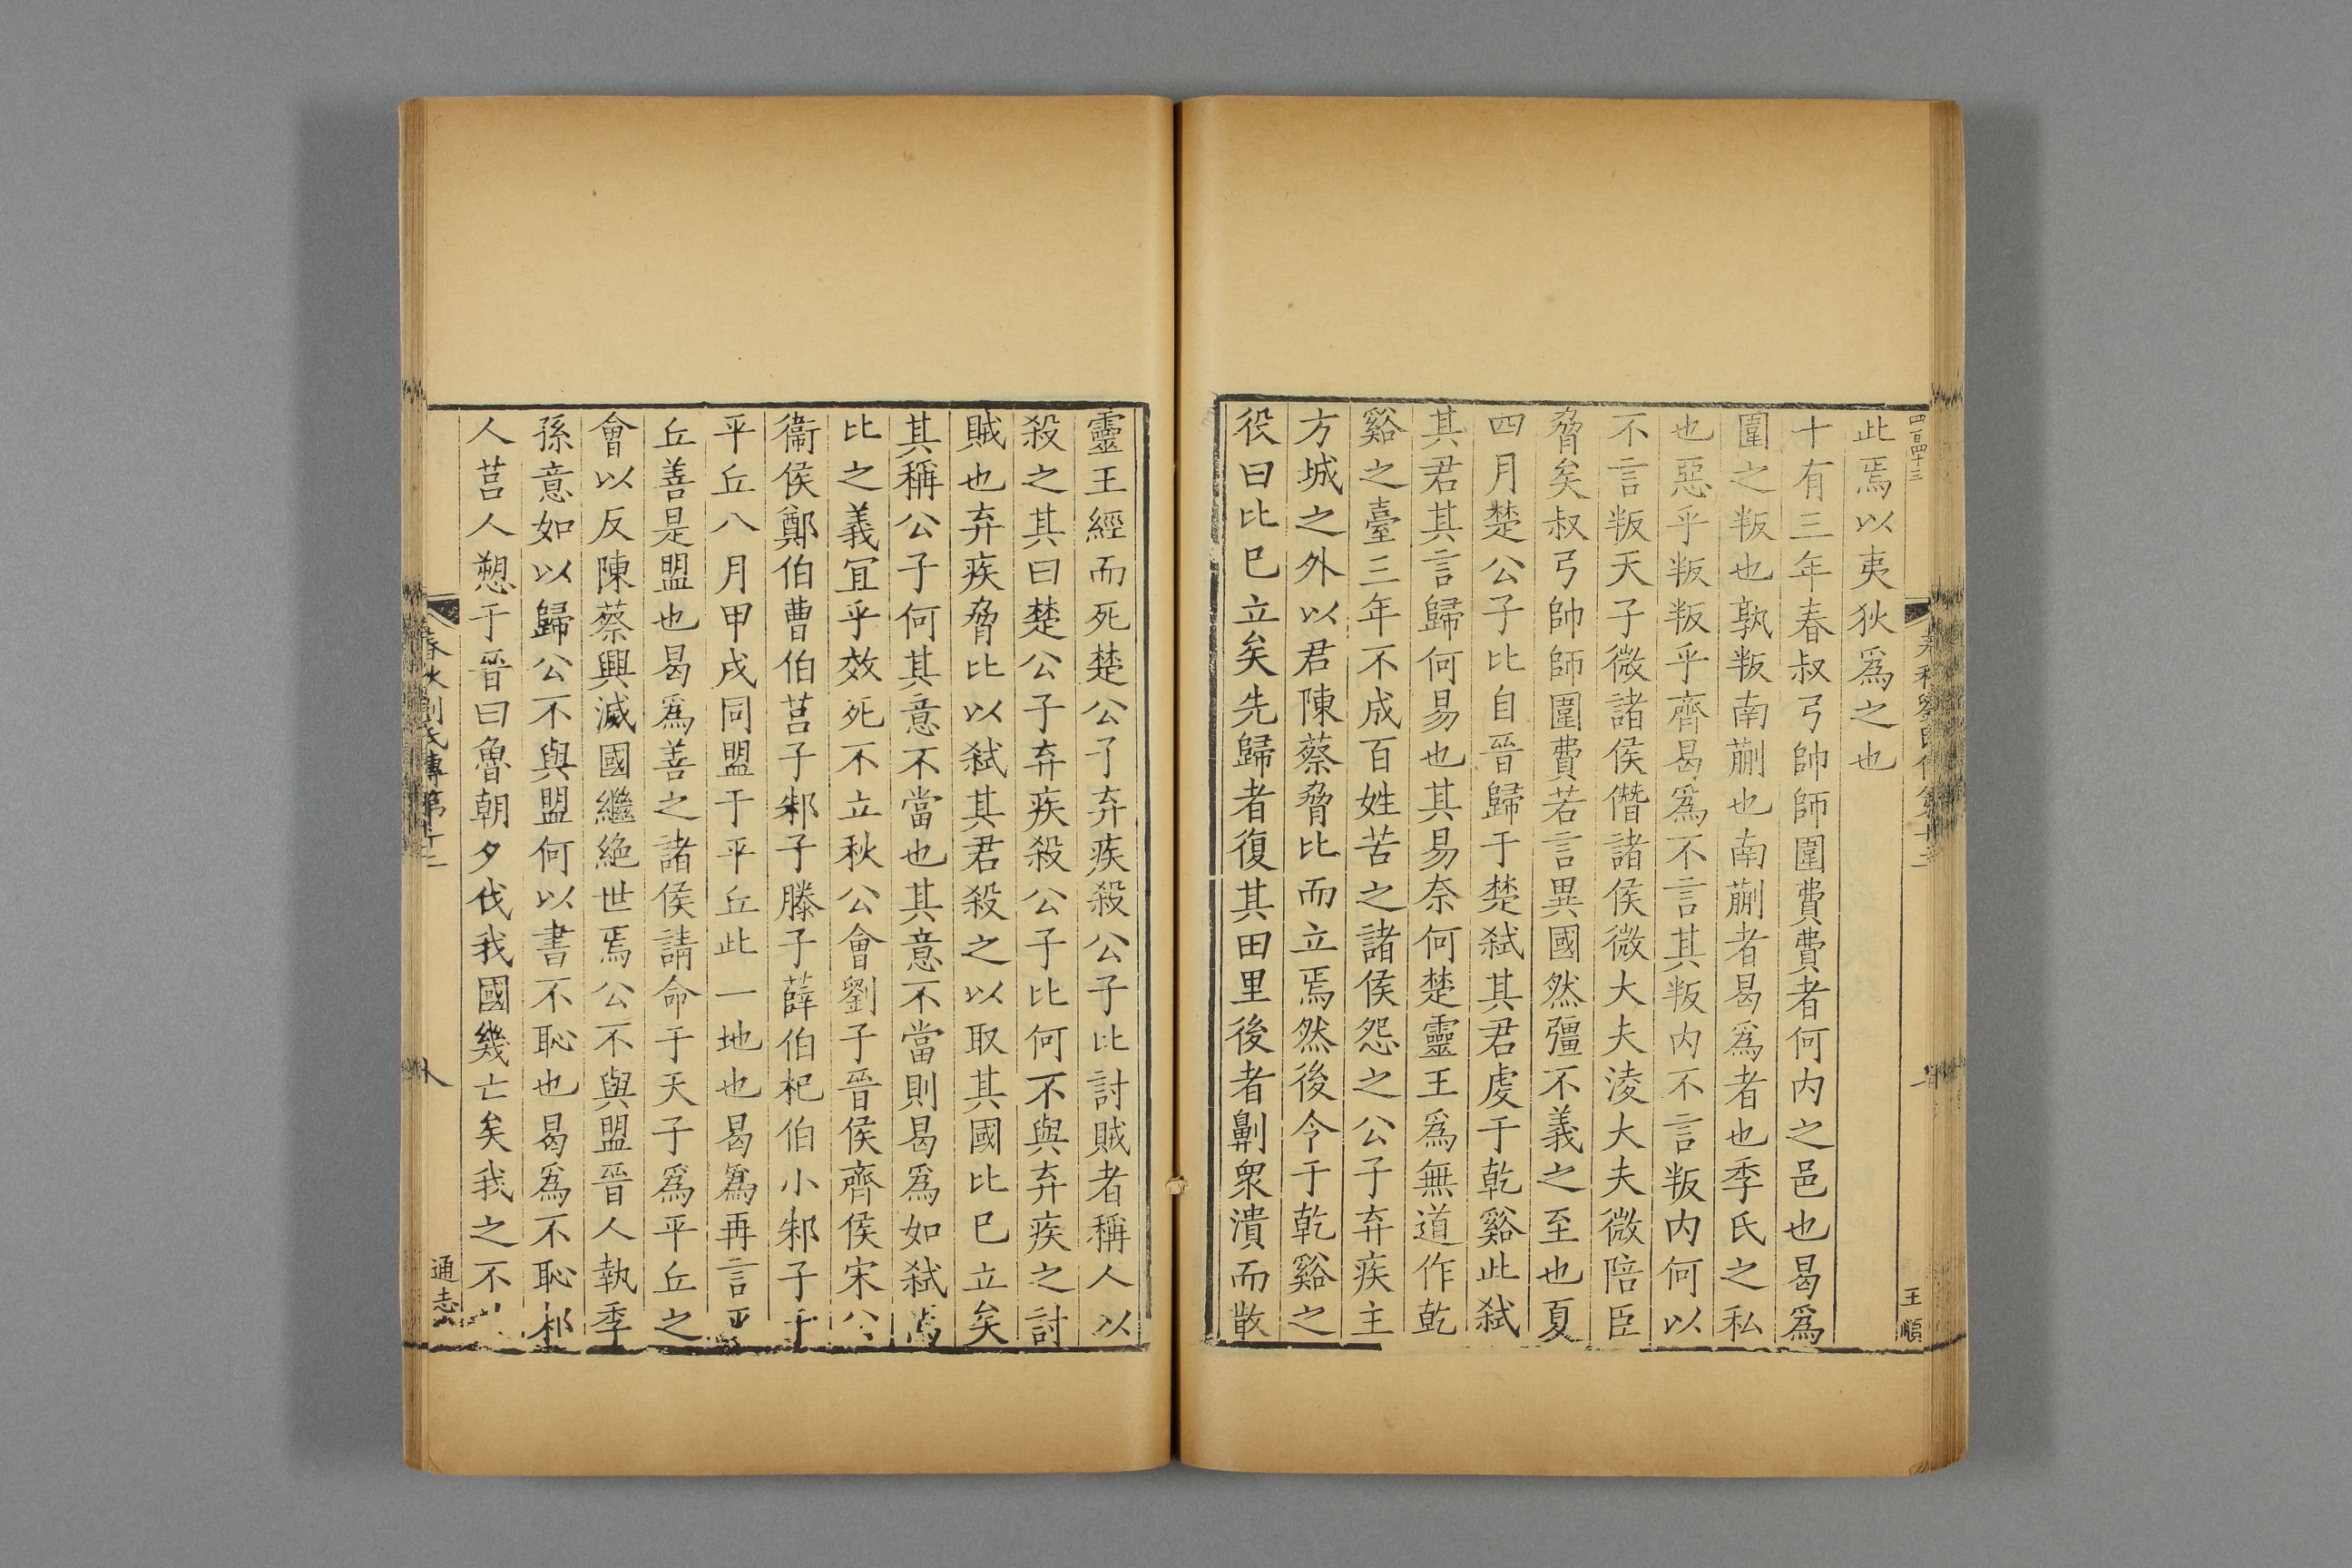 四百四十三
王順
此焉以夷狄爲之也
十有三年春叔弓帥師圍費費者何内之邑也曷爲
圍之叛也孰叛南蒯也南蒯者曷爲者也季氏之私
也惡乎叛叛乎齊曷爲不言其叛内不言叛内何以
不言叛天子微諸侯僭諸侯微大夫淩大夫微陪臣
脅矣叔弓帥師圍費若言異國然彊不義之至也夏
四月楚公子比自晉歸于楚弑其君虔于乾谿此弑
其君其言歸何易也其易奈何楚靈王爲無道作乾
谿之臺三年不成百姓苦之諸侯怨之公子弃疾主
方城之外以君陳蔡脅比而立焉然後令于乾谿之
役曰比巳立矣先歸者復其田里後者劓衆潰而散
靈王經而死楚公子弃疾殺公子比討賊者稱人以
殺之其曰楚公子弃疾殺公子比何不與弃疾之討
賊也弃疾脅比以弑其君殺之以取其國比巳立矣
其稱公子何其意不當也其意不當則曷爲如弑焉
比之義宜乎效死不立秋公會劉子晉侯齊侯宋公
衞侯鄭伯曹伯莒子邾子滕子薛伯杞伯小邾子于
平丘八月甲戌同盟于平丘此一地也曷爲再言平
丘善是盟也曷爲善之諸侯請命于天子爲平丘之
會以反陳蔡興滅國繼絶世焉公不與盟晉人執季
孫意如以歸公不與盟何以書不恥也曷爲不恥邾
人莒人愬于晉曰魯朝夕伐我國幾亡矣我之不
春秋劉氏傳第十二
通志